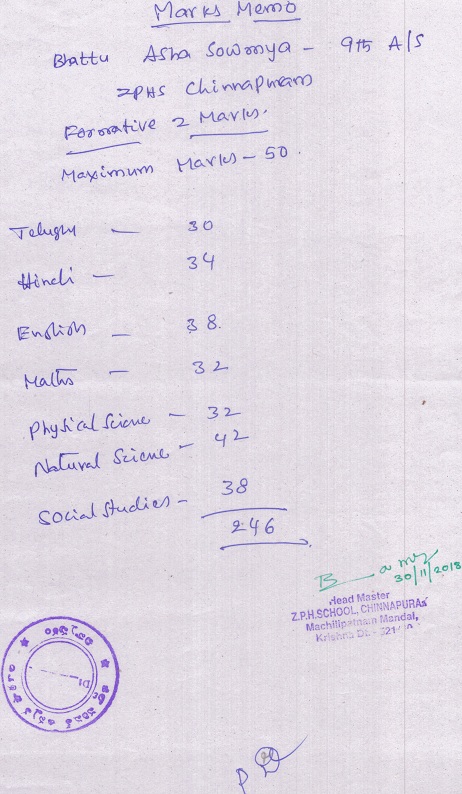 Marks Memo
Bhattu Asha Sowmya - 9th A/S
ZPHS Chinnapuram
Formative 2 Marks.
Maximum Marks - 50.
Telugu — 30
Hindi — 34
English — 38.
Maths — 32
Physical Sciene — 32
Natural Sciene - 42
Social Studies - 38
246
30/11/2018
Head Master
Z.P.H.SCHOOL, CHINNAPURAM
Machilipatnam Mandal,
Krishna Dt.-